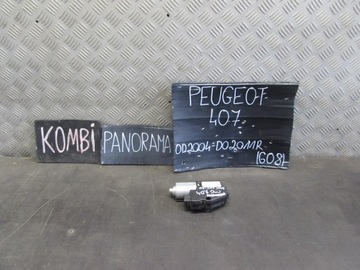 PEUGEOT
407
KOMBi PANORAMA
OD2004-DO2011R
(G08)